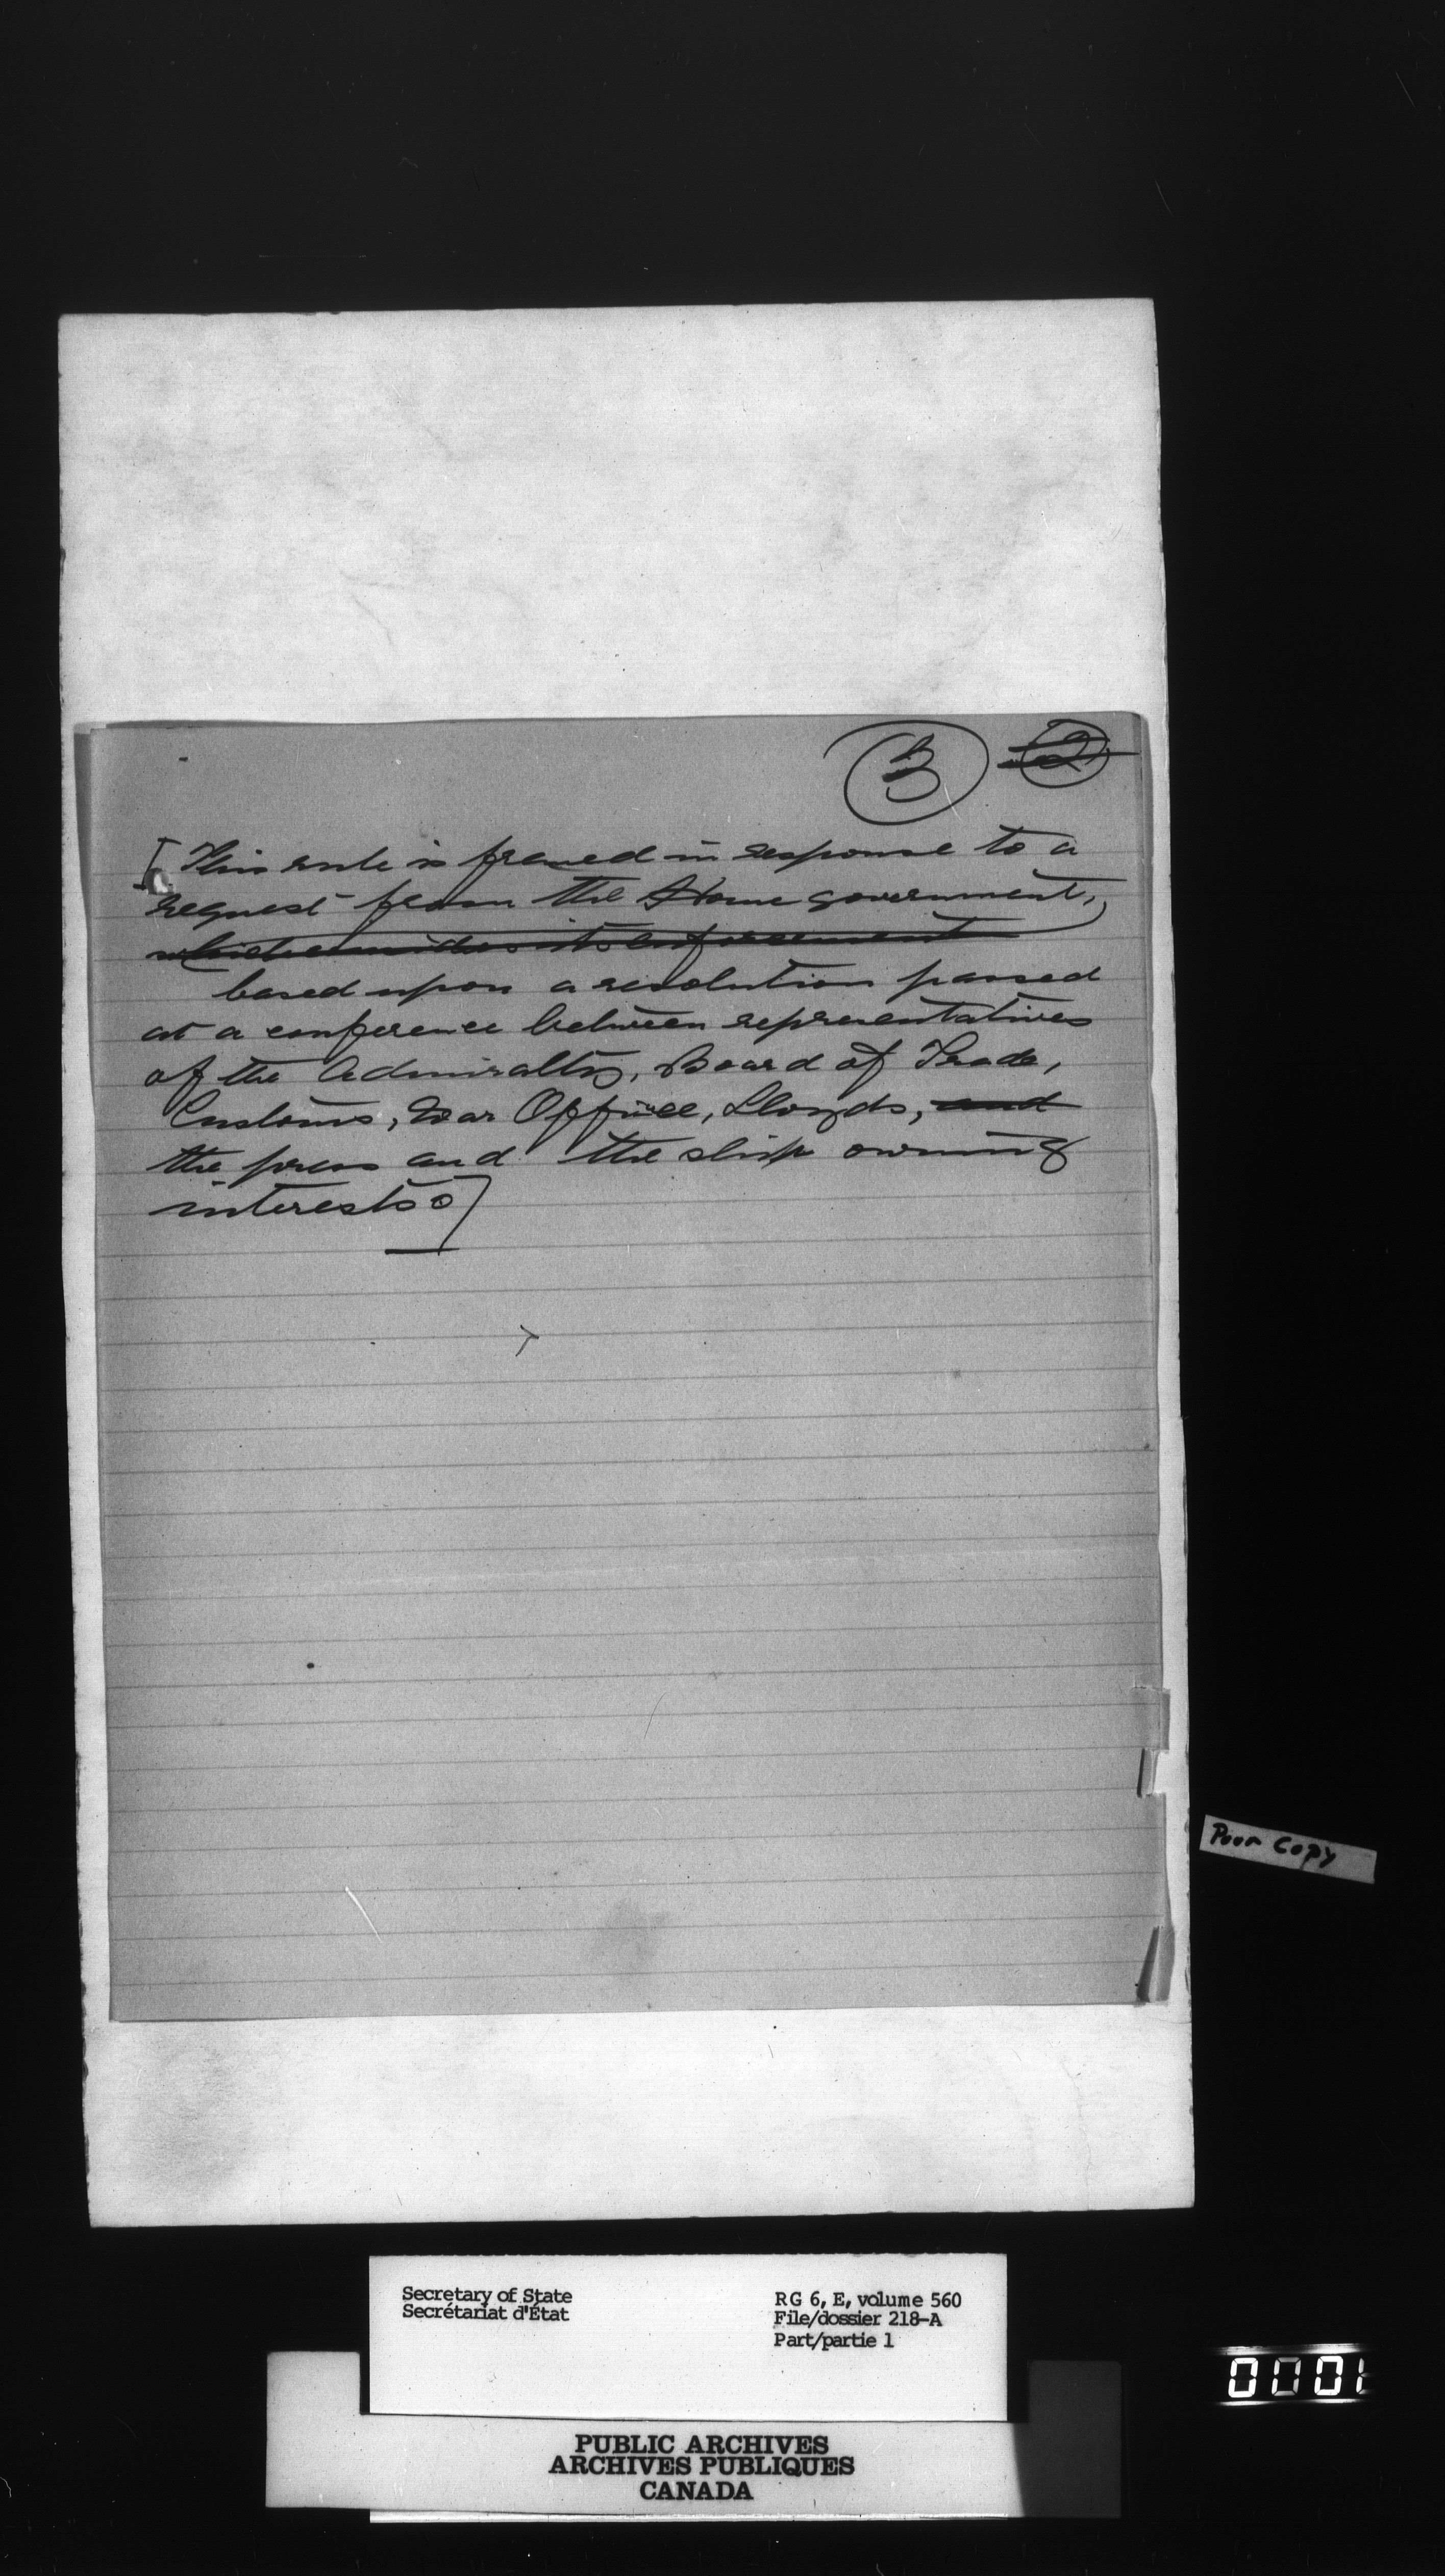 3 2
[This rule is framed in response to a
request from the Home government,
which
based upon a resolution passed
at a conference between representatives
of the Admiralty, Board of Trade,
Customs, War Office, Lloyds, and
the press and the ship owning
interests.]
Poor Copy
Secretary of State
Secrétariat d'État
RG 6, E, volume 560
File/dossier 218-A
Part/partie 1
0001
PUBLIC ARCHIVES
ARCHIVES PUBLIQUES
CANADA